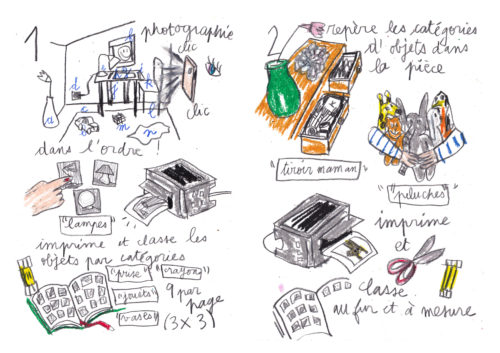 1
photographie
clic
clic
a
b
c
d
k
l
m
n
dans l'ordre !
"lampes"
imprime et classe les
objets par catégories
"prise"
"crayon"
"jouets"
"vases"
9 par
page
(3x3)
2
repère les catégories
d'objets dans
la pièce
"tiroir maman"
"peluches"
imprime
et
classe
au fur et à mesure